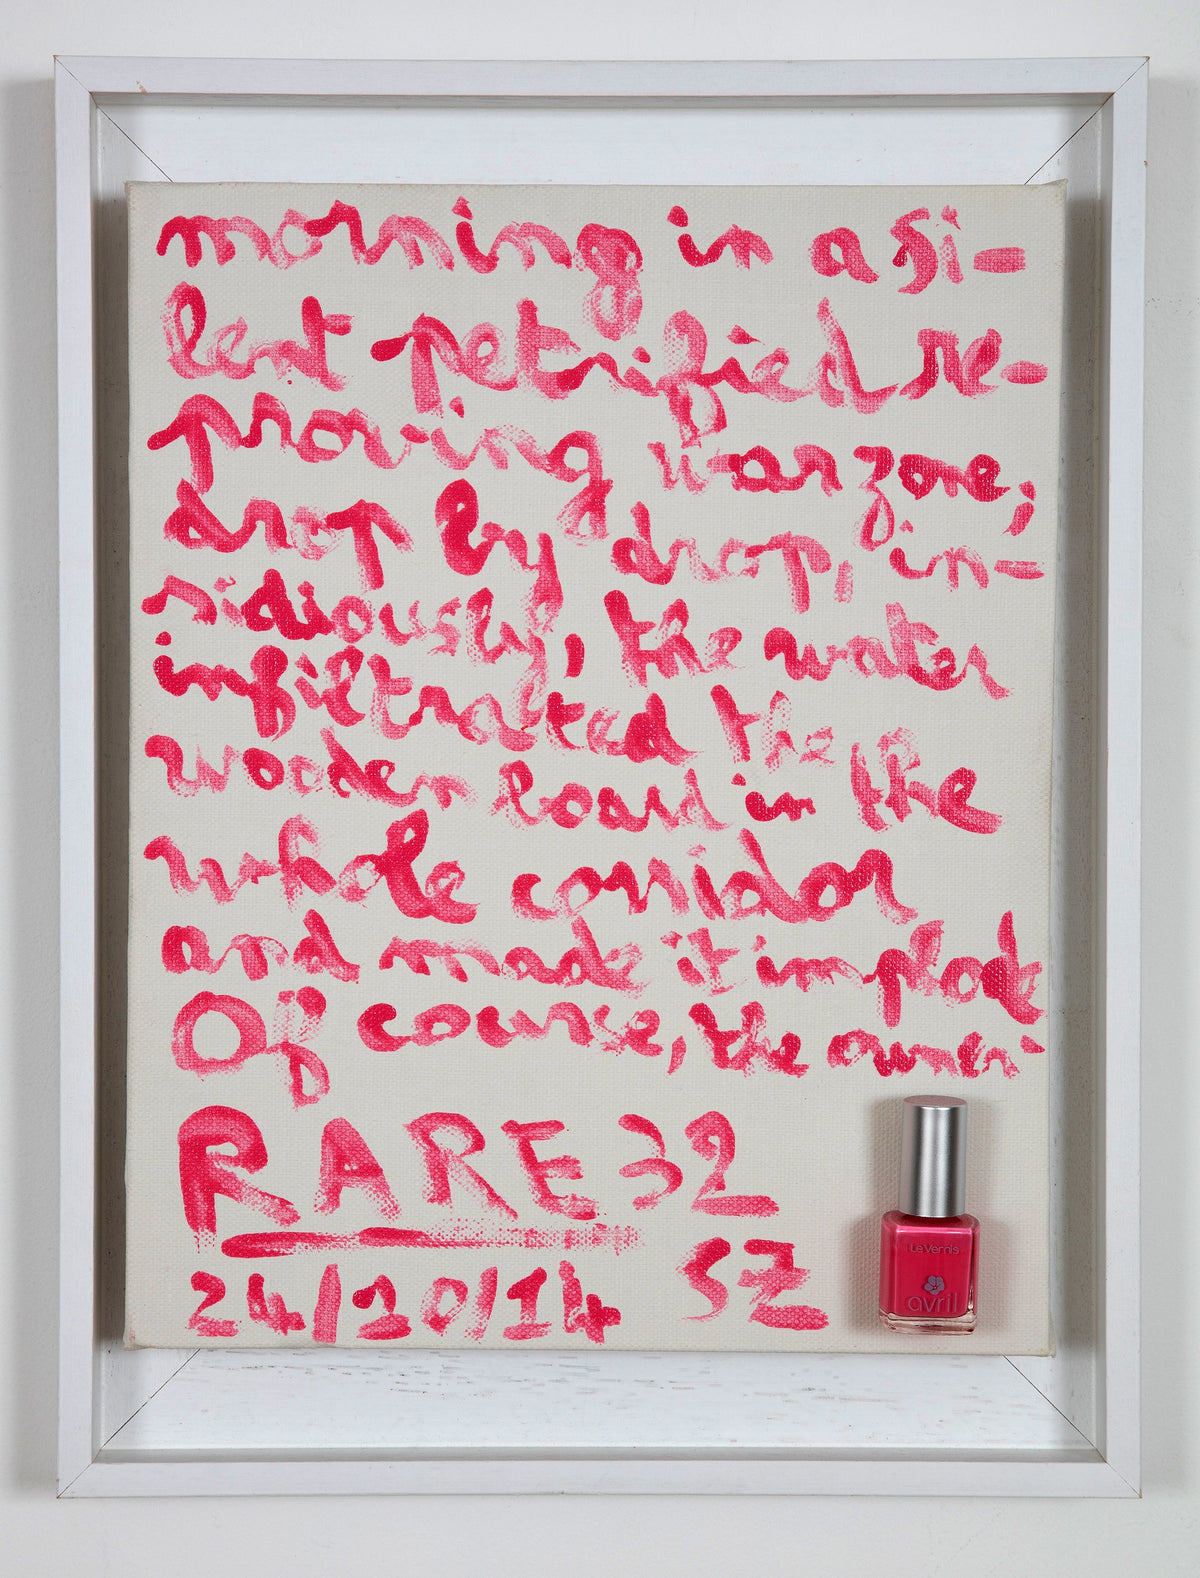 morning in a si-
lent petrified re-
proving warzone;
drop by drop, in-
sidiously, the water
infiltrated the
wooden board in the
whole corridor
and made it implode
Of course, the owner
RARE 32
24/10/14 SZ
Le Vernis
avril